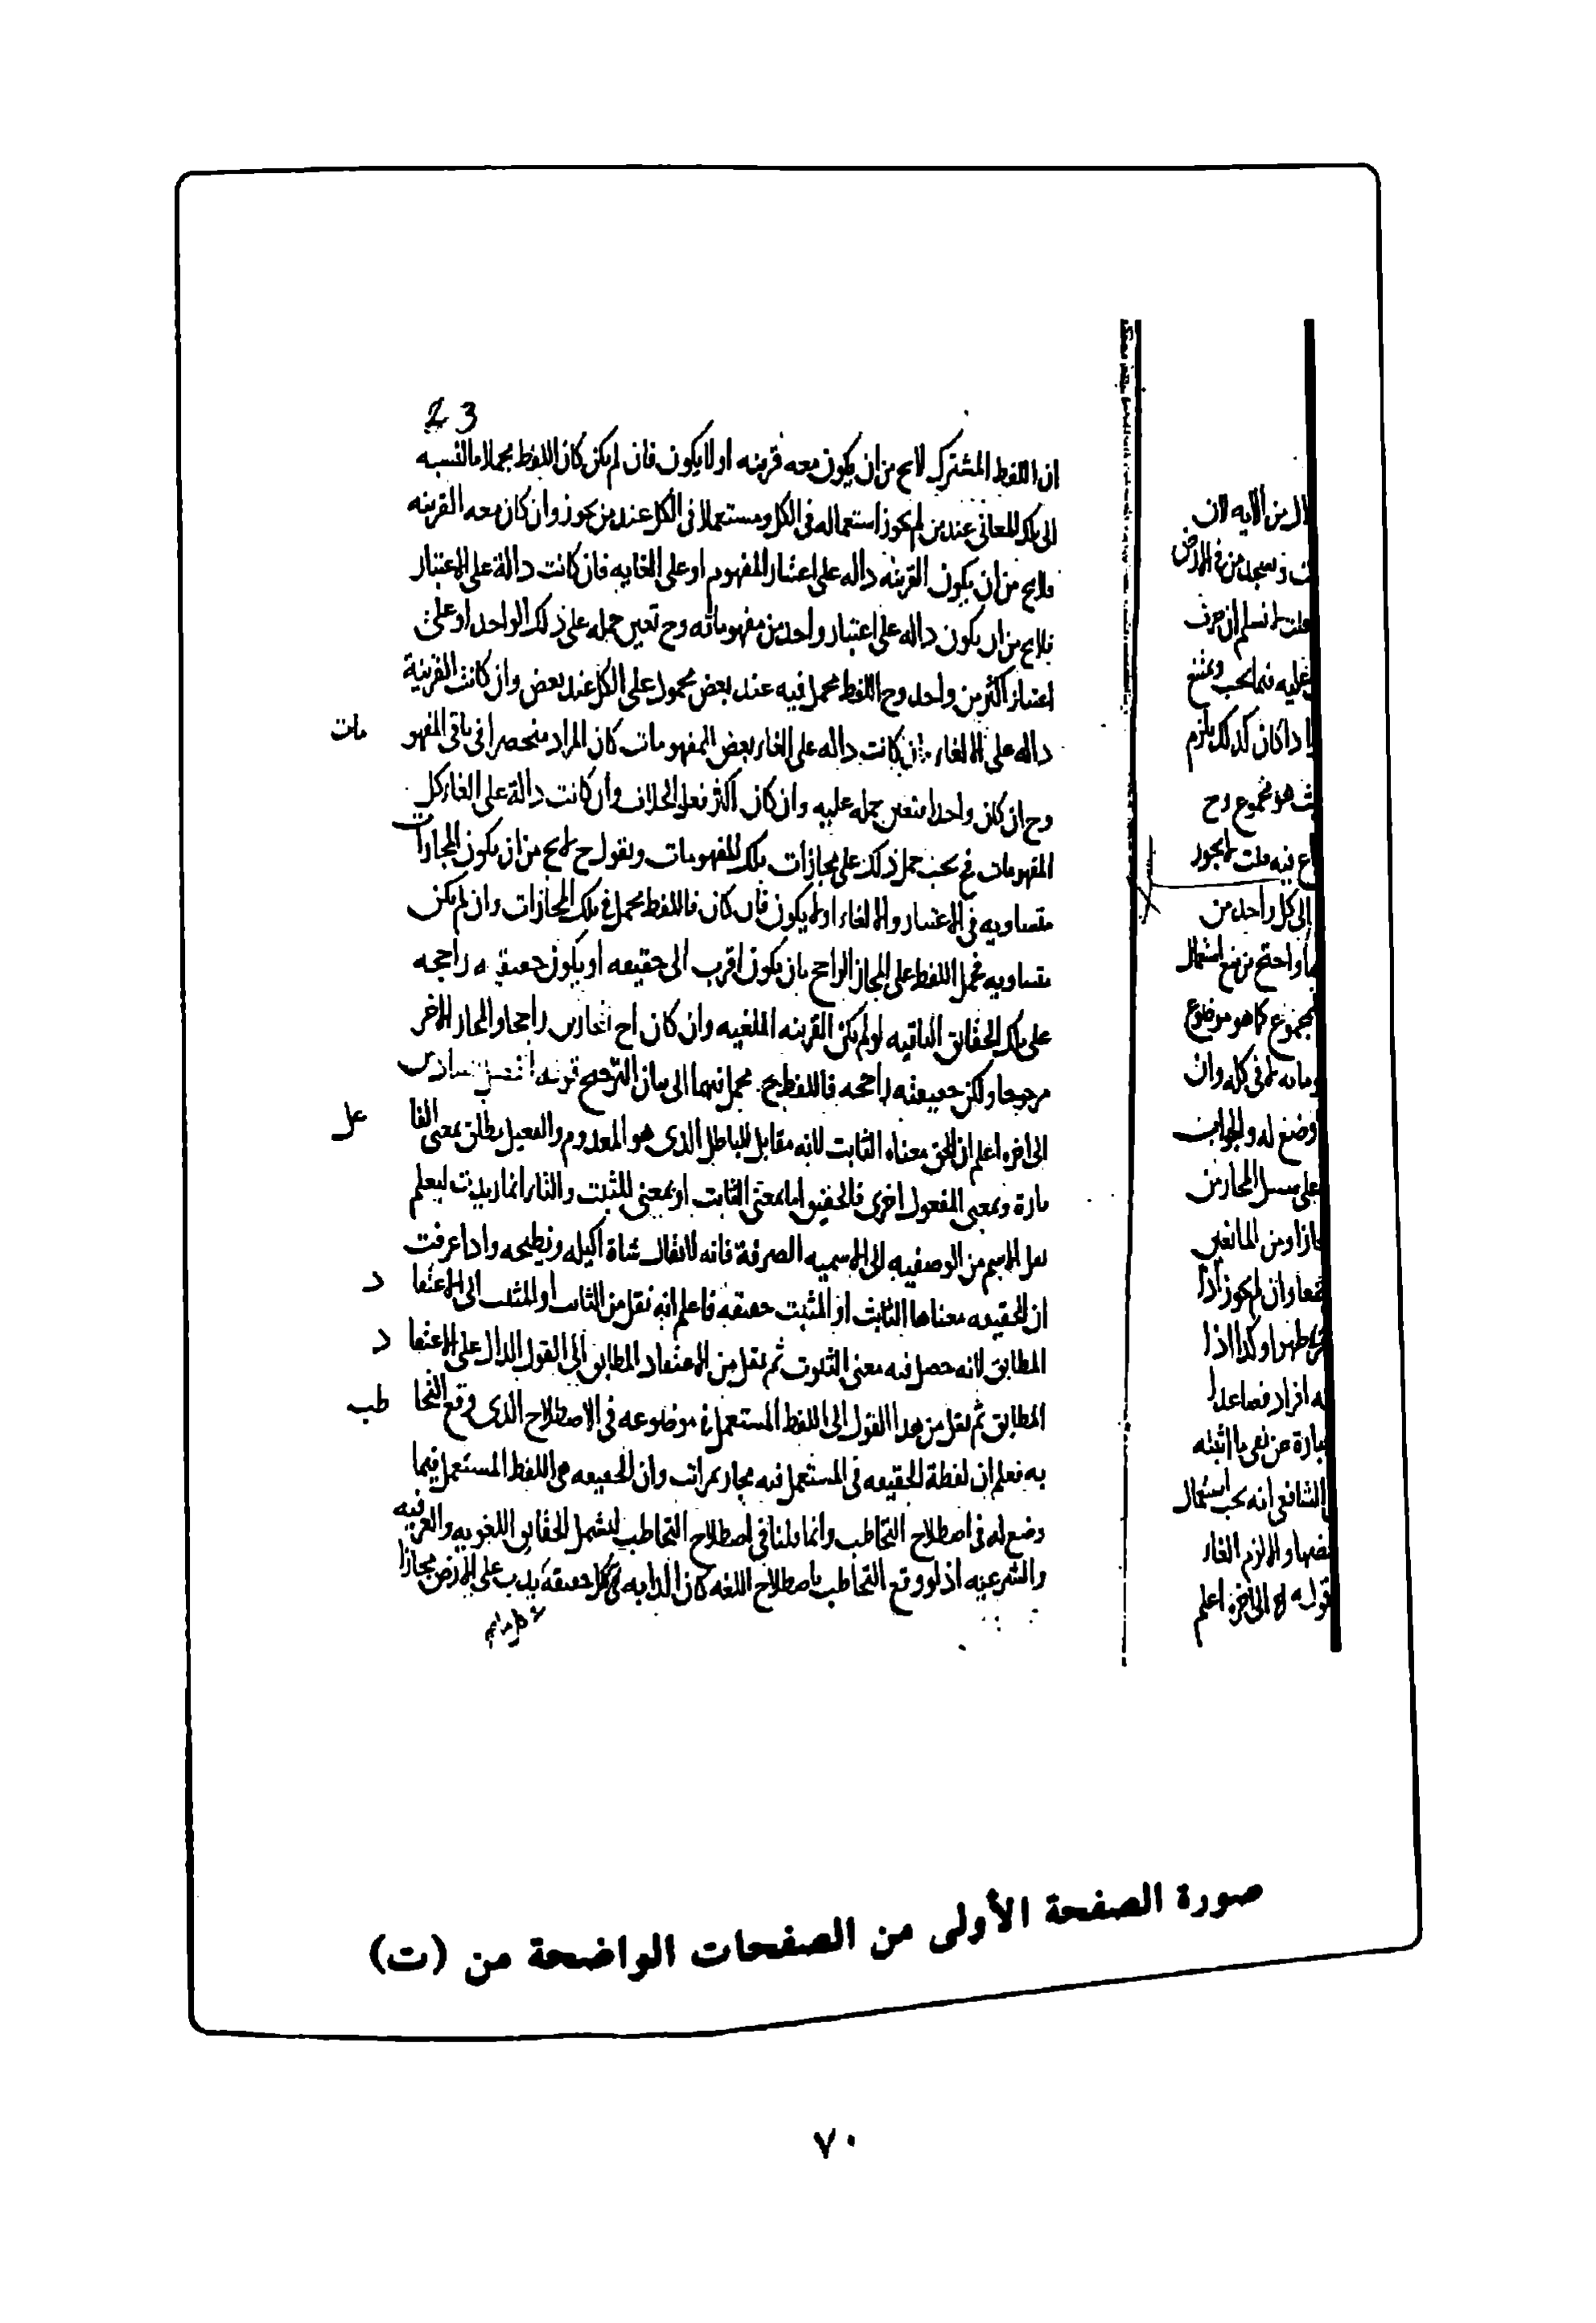 23
ان اللفظ المشترك لا يح من ان يكون معه قرينه او لا يكون فان لم يكن كان اللفظ مجملا بالنسبه
الى تلك المعانى عند من لم يجوز استعماله فى الكل ومستعملا فى الكل عند من يجوز وان كان معه القرينه
فلا يح من ان يكون القرينه داله على اعتبار المفهوم او على الغايه فان كانت دالة على الاعتبار
فلا يح من ان يكون داله على اعتبار واحد من مفهوماته وح تعين حمله على ذلك الواحد او على
اعتبار اكثر من واحد وح اللفظ مجمل فيه عند بعض محمول على الكل عند بعض وان كانت القرينة
داله على الالغاء فان كانت داله على الغاء بعض المفهومات كان المراد منحصرا فى باقى المفهو مات
وح ان كان واحدا يتعين حمله عليه وان كان اكثر فعلى الخلاف وان كانت دالة على الغاء كل
المفهومات فح يجب حمل ذلك على مجازات تلك المفهومات ونقول ح لا يح من ان يكون المجازات
متساويه فى الاعتبار والالغاء او لا يكون فان كان فاللفظ مجمل فى تلك المجازات وان لم يكن
متساويه فيحمل اللفظ على المجاز الراجح بان يكون اقرب الى حقيقه او يكون حقيقته راجحه
على تلك الحقائق الباقيه لو لم يكن القرينه الملغيه وان كان احد المجازين راجحا والمجاز الاخر
مرجوحا ولكن حقيقته راجحه فاللفظ ح مجمل فيهما الى بيان الترجيح قوله
الى اخره اعلم ان الحق معناه الثابت لانه مقابل للباطل الذى هو المعدوم والفعيل يطلق بمعنى الفا عل
تارة وبمعنى المفعول اخرى فالحقيق اما بمعنى الثابت او بمعنى المثبت والتاء انما زيدت ليعلم
نقل الاسم من الوصفيه الى الاسميه الصرفة فانه لا يقال شاة اكيله ونطيحه واذا عرفت
ان الحقيقه معناها الثابت او المثبت حقيقه فاعلم انه نقل من الثابت او المثبت الى الاعتقا د
المطابق لانه حصل فيه معنى الثبوت ثم نقل من الاعتقاد المطابق الى القول الدال على الاعتقا د
المطابق ثم نقل من هذا القول الى اللفظ المستعمل فى موضوعه فى الاصطلاح الذى وقع التخا طب
به فعلم ان لفظة الحقيقه فى المستعمل فيه مجاز بمراتب وان الحقيقه هى اللفظ المستعمل فيما
وضع له فى اصطلاح التخاطب وانما قلنا فى اصطلاح التخاطب ليشمل الحقائق اللغويه والعرفيه
والشرعيه اذ لو وقع التخاطب باصطلاح اللغه كان الدابه فى كل حقيقة يدب على الارض مجازا
من الآيه لان
من فى الارض
قلت لا نسلم ان حرف
عليه فيما يجب ويمتنع
اذا كان كذلك يلزم
هو مجموع وح
فيه قلت لا يجوز
الى كل واحد من
واحتج من منع استعمال
مجموع كما هو موضوع
فى كله وان
وضع له والجواب
على سبيل المجاز من
ومن المانعين
معا وان لم يجوز اذا
وكذا اذا
افراد فصاعدا
عبارة عن نفى ما اثبته
الشافعى انه يجب استعمال
والا لزم الغاء
قوله الى اخره اعلم
صورة الصفحة الأولى من الصفحات الواضحة من (ت)
٧٠